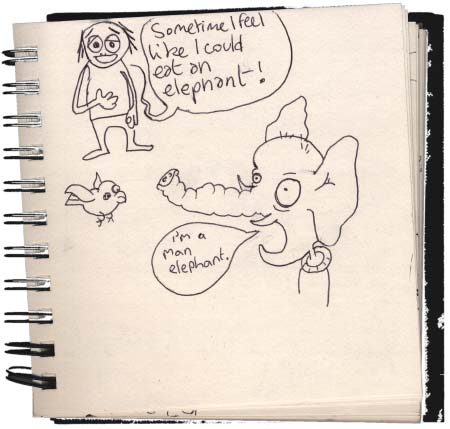 Sometime I feel
like I could
eat an
elephant!
i'm a
man
elephant.